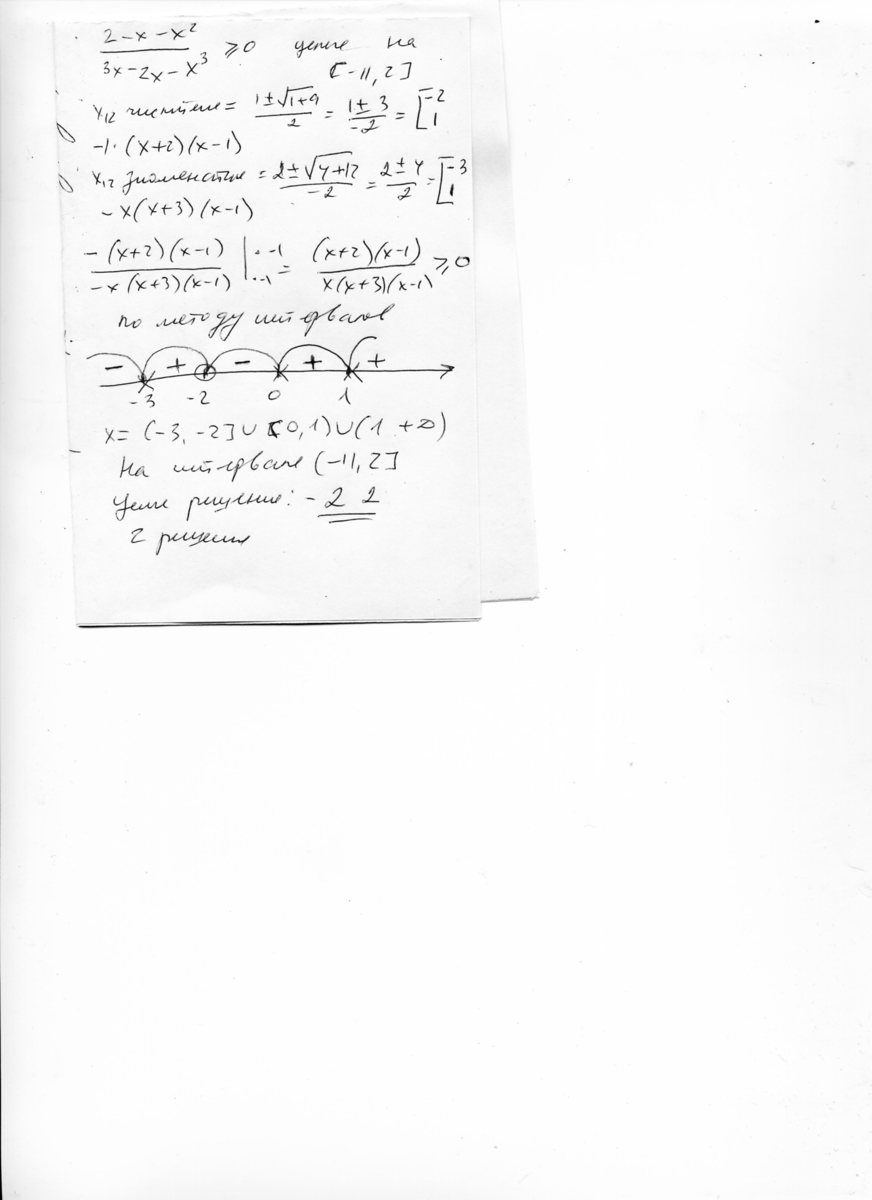 (2-x-x²)/(3x-2x-x³) ≥0 целые на
[-11,2]
x₁₂ числителя = (1±√(1+9))/2 = (1±3)/-2 = [-2 1
-1·(x+2)(x-1)
x₁₂ знаменателе = (2±√(4+12))/-2 = (2±4)/2 = [-3 1
-x(x+3)(x-1)
(-(x+2)(x-1))/(-x(x+3)(x-1)) |·-1 ·-1 = ((x+2)(x-1))/(x(x+3)(x-1)) ≥0
по методу интервалов
- + - + +
-3 -2 0 1
x= (-3,-2]∪(0,1)∪(1 +∞)
на интервале (-11,2]
Целые решение: -2 2
2 решения